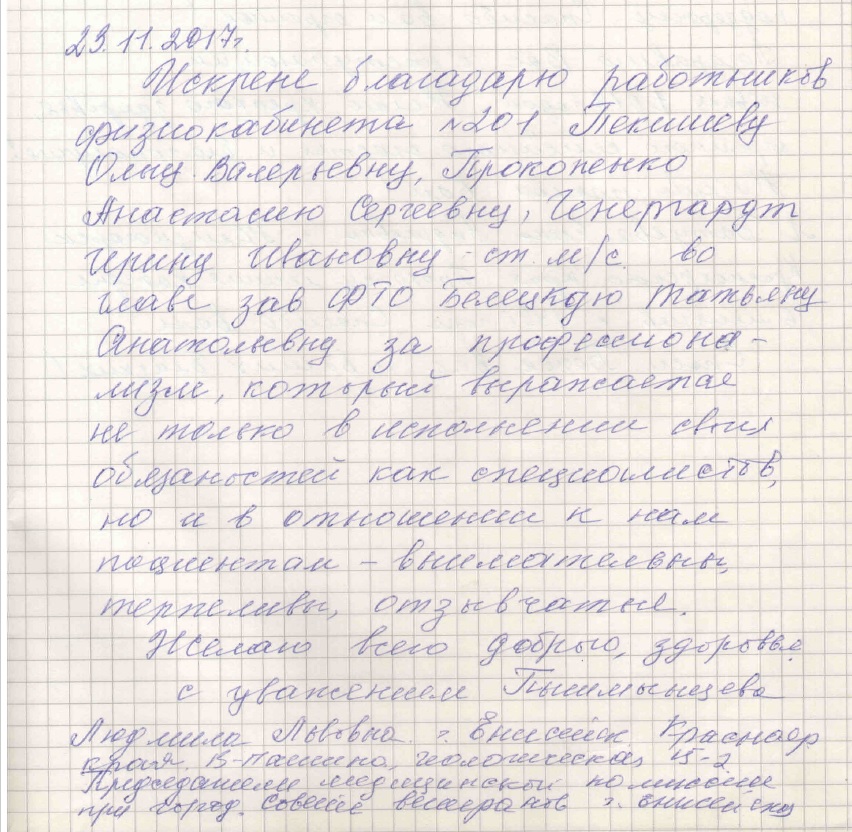 23.11.2017г.
Искрене благадарю работников
физиокабинета №201 Пекишеву
Ольгу Валерьевну, Прокопенко
Анастасию Сергеевну, Генергардт
Ирину Ивановну - ст. м/с. во
главе зав ФТО Белецкую Татьяну
Анатольевну за профессиона-
лизм, который выражается
не только в исполнении своих
обязаностей как специалистов,
но и в отношении к нам
пациентам - внимательны,
терпеливы, отзывчатые.
Желаю всего доброго, здоровья
с уважением
Людмила Львовна. г. Енисейск Краснояр
края. П-Пашино, геологическая, 15-2
Председатель медицинской комиссии
при город. Совете ветеранов г. Енисейска